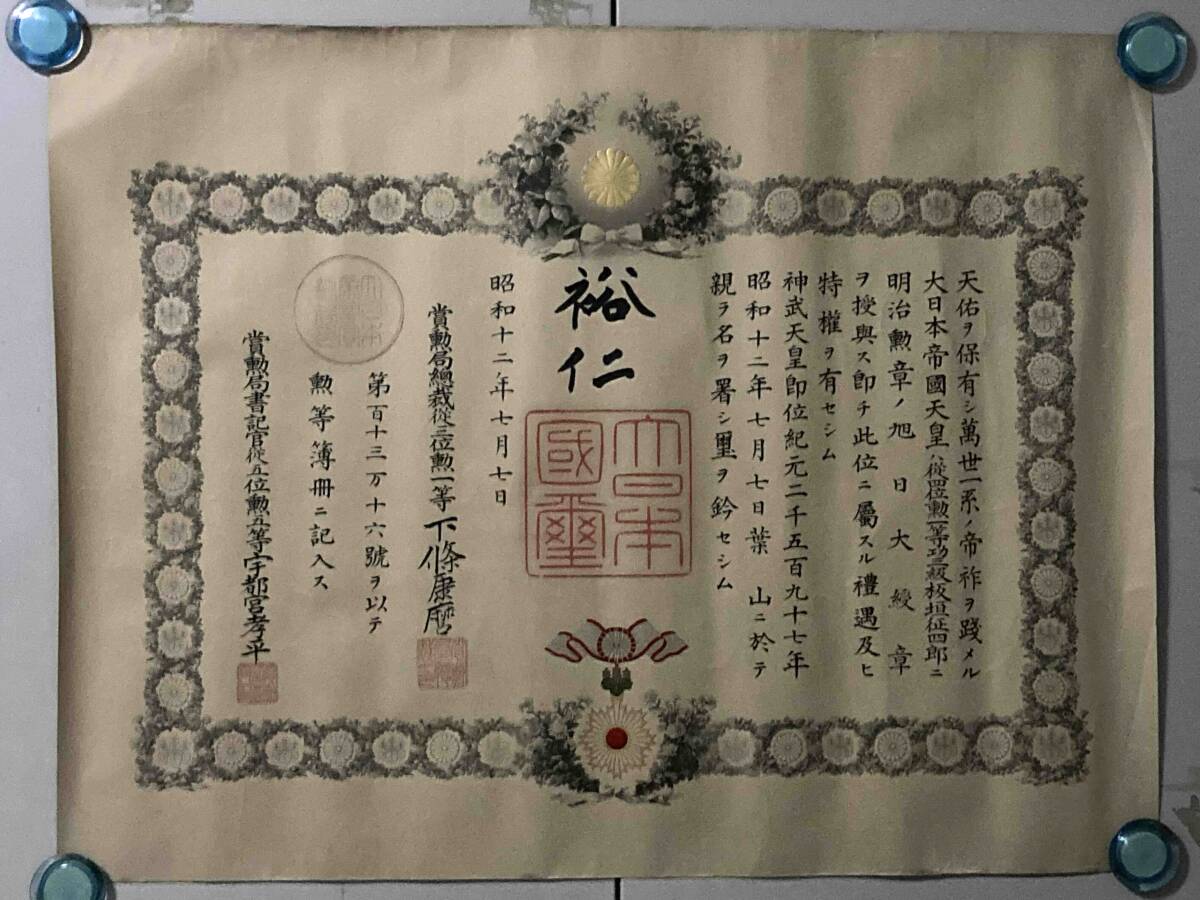 天佑ヲ保有シ萬世一系ノ帝祚ヲ踐メル
大日本帝國天皇ハ從四位勲一等功三級板垣征四郎ニ
明治勲章ノ旭日大綬章
ヲ授與ス即チ此位ニ屬スル禮遇及ヒ
特權ヲ有セシム
神武天皇即位紀元二千五百九十七年
昭和十二年七月七日葉山ニ於テ
親ラ名ヲ署シ璽ヲ鈐セシム
裕仁
大日本
國璽
昭和十二年七月七日
賞勲局總裁從三位勲一等下條康麿
第百十三万十六號ヲ以テ
勲等簿冊ニ記入ス
賞勲局書記官從五位勲五等宇都宮孝平